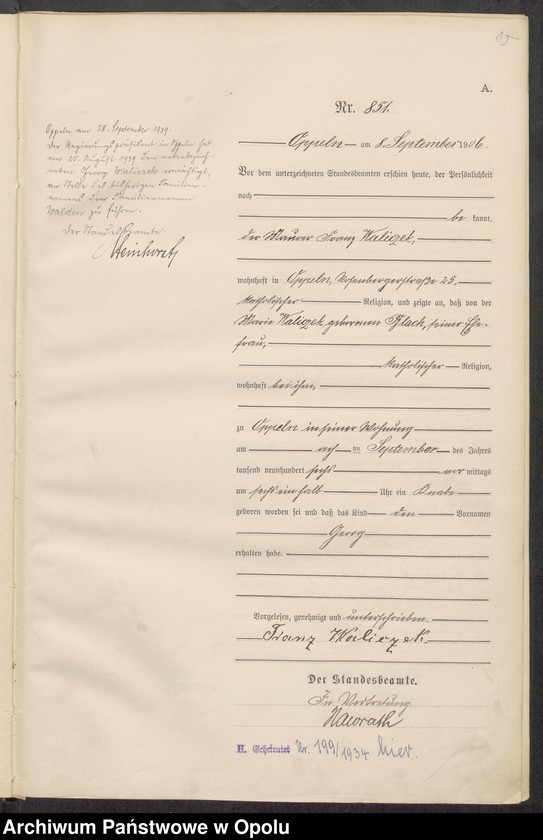 15
A.
Nr. 851.
Oppeln am 8. September 1906.
Vor dem unterzeichneten Standesbeamten erschien heute, der Persönlichkeit
nach
be kannt,
der Maurer Franz Waliczek,
wohnhaft in Oppeln, Rosenbergerstraße 25,
katholischer Religion, und zeigte an, daß von der
Marie Waliczek, geborenen Pflach, seiner Ehe-
frau,
katholischer Religion,
wohnhaft bei ihm,
zu Oppeln in seiner Wohnung
am acht ten September des Jahres
tausend neunhundert sechs vor mittags
um sechs ein halb Uhr ein Knabe
geboren worden sei und daß das Kind den Vornamen
Georg
erhalten habe.
Vorgelesen, genehmigt und unterschrieben.
Franz Waliczek.
Der Standesbeamte.
In Vertretung.
Nawrath
H. Geheiratet Nr. 199/1934 hier.
Oppeln am 28. September 1939.
Der Regierungspräsident in Oppeln hat
am 25. August 1939 den nebenbezeich-
neten Georg Waliczek ermächtigt,
an Stelle des bisherigen Familien-
namens den Familiennamen
Walden zu führen.
Der Standesbeamte
Archiwum Państwowe w Opolu